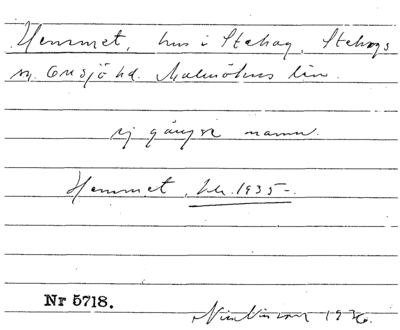 Hemmet, hus i Stehag, Stehags
sn, Onsjö hd. Malmöhus län.
ej gängse namn.
Hemmet, 1935-.
Nr 5718.
1936.